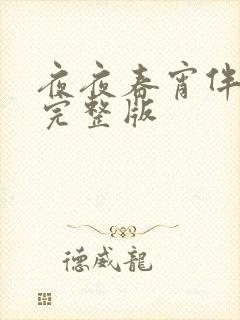 夜夜春宵伴
完整版
德威龍